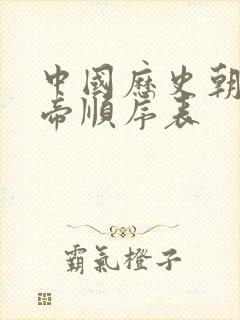 中國歷史朝
帝順序表
霸氣橙子